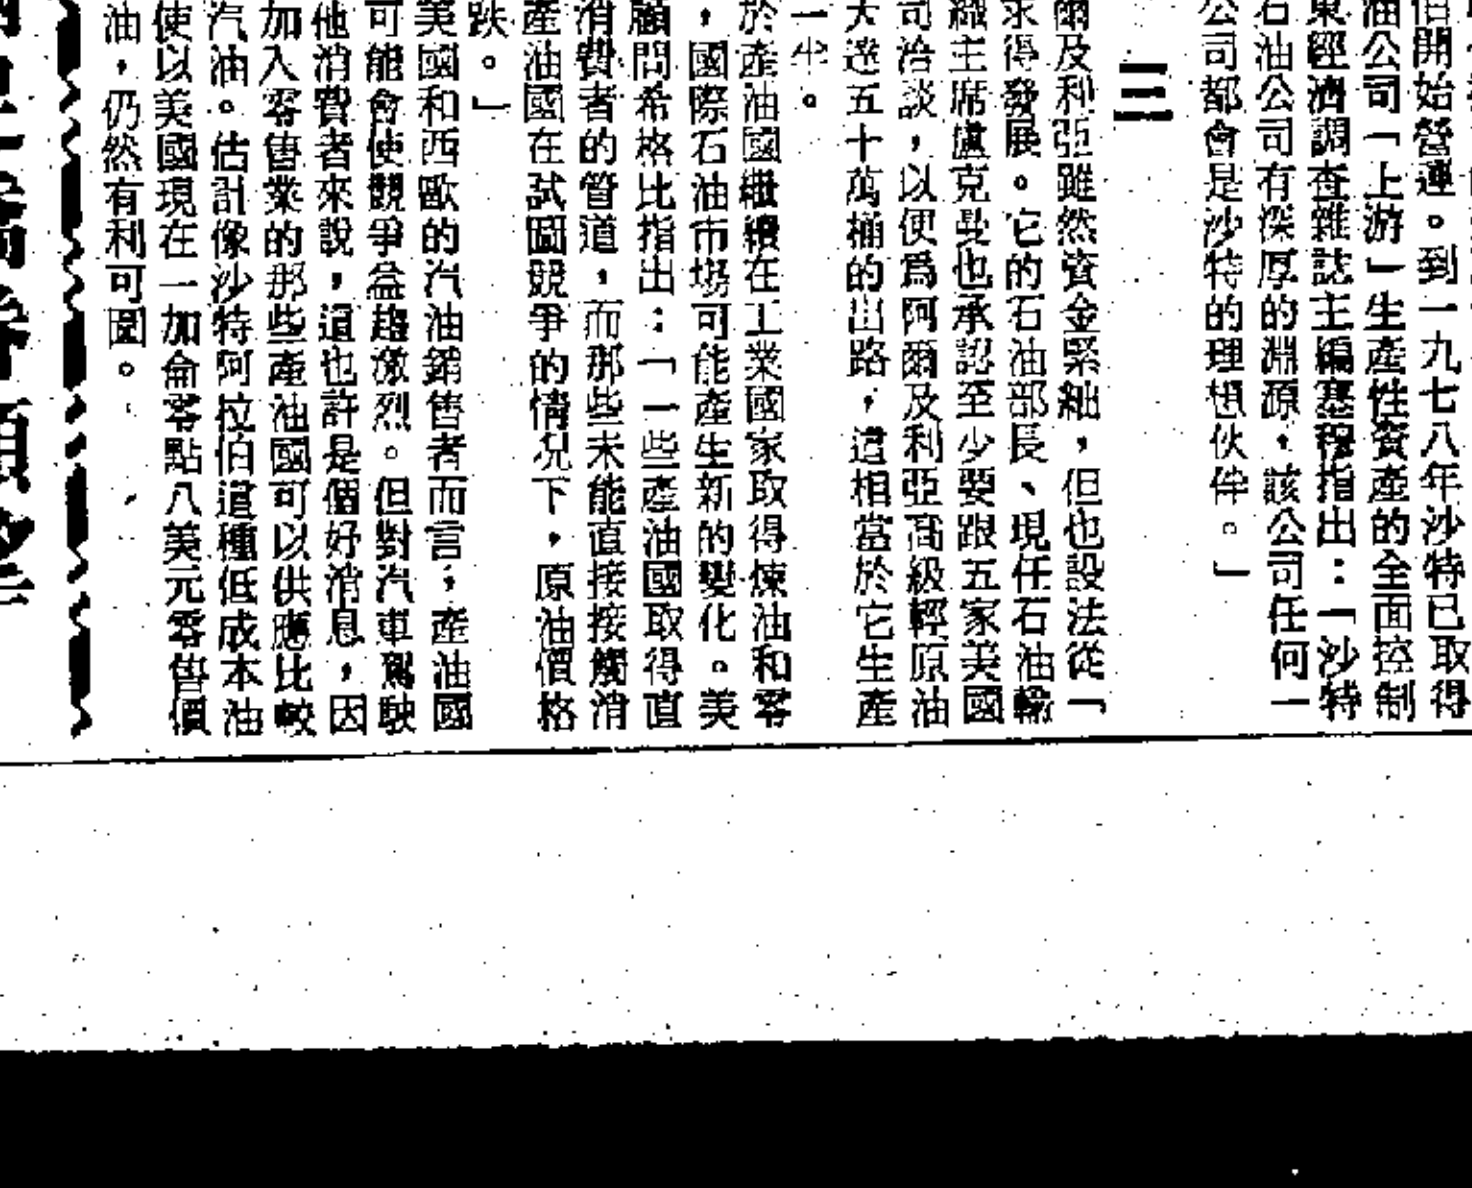 伯開始營運。到一九七八年沙特已取得
油公司「上游」生產性資產的全面控制
東經濟調查雜誌主編塞穆指出：「沙特
石油公司有深厚的淵源，該公司任何一
公司都會是沙特的理想伙伴。」
三
爾及利亞雖然資金緊絀，但也設法從「
求得發展。它的石油部長、現任石油輸
織主席盧克曼也承認至少要跟五家美國
司洽談，以便爲阿爾及利亞高級輕原油
大達五十萬桶的出路，這相當於它生產
一半。
於產油國繼續在工業國家取得煉油和零
，國際石油市場可能產生新的變化。美
顧問希格比指出：「一些產油國取得直
消費者的管道，而那些未能直接接觸消
產油國在試圖競爭的情况下，原油價格
跌。」
美國和西歐的汽油銷售者而言，產油國
可能會使競爭益趨激烈。但對汽車駕駛
他消費者來說，這也許是個好消息，因
加入零售業的那些產油國可以供應比較
汽油。估計像沙特阿拉伯這種低成本油
使以美國現在一加侖零點八美元零售價
油，仍然有利可圖。